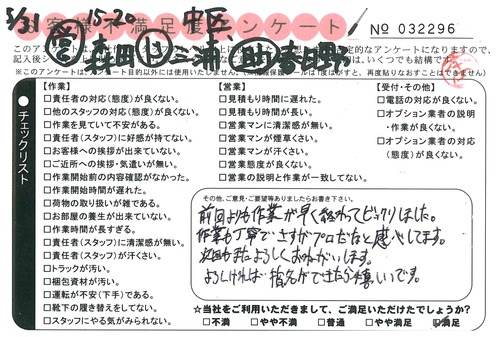 5/31 15-20 中区
お客様満足度アンケート
No 032296
営 森田 三浦 助 春日野
チェックリスト
【作業】
□責任者の対応(態度)が良くない。
□他のスタッフの対応(態度)が良くない。
□作業を見ていて不安がある。
□責任者(スタッフ)に好感が持てない。
□お客様への挨拶が出来ていない。
□ご近所への挨拶・気遣いが無い。
□作業開始前の内容確認がなかった。
□作業開始時間が遅れた。
□荷物の取り扱いが雑である。
□お部屋の養生が出来ていない。
□作業時間が長すぎる。
□責任者(スタッフ)に清潔感が無い。
□責任者(スタッフ)が汗くさい。
□トラックが汚い。
□梱包資材が汚い。
□運転が不安(下手)である。
□靴下の履き替えをしてない。
□スタッフにやる気がみられない。
【営業】
□見積もり時間に遅れた。
□見積もり時間が長い。
□営業マンに清潔感が無い。
□営業マンが煙草くさい。
□営業マンが汗くさい。
□営業態度が良くない。
□営業の説明と作業が一致してない。
【受付・その他】
□電話の対応が良くない。
□オプション業者の説明
・作業が良くない。
□オプション業者の対応
(態度)が良くない。
その他、ご意見・ご要望等ありましたらお書き下さい。
前回よりも作業が早く終わってビックリしました。
作業も丁寧でさすがプロだなと感心してます。
次回もまたよろしくおねがいします。
よろしければ指名ができたら嬉しいです。
☆当社をご利用いただきまして、ご満足いただけたでしょうか?
□不満 □やや不満 □普通 □やや満足 ☑満足